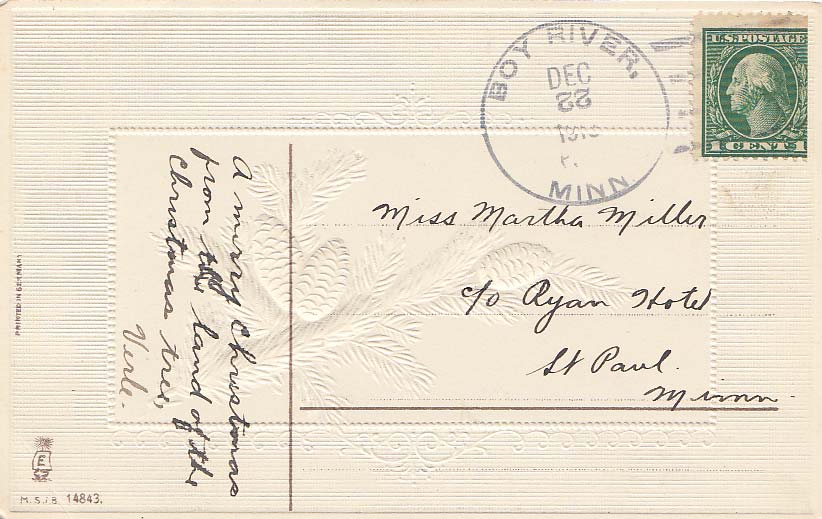 BOY RIVER,
DEC
22
MINN.
U.S. POSTAGE
1 CENT 1
A merry Christmas
from the land of the
Christmas tree,
Verle.
Miss Martha Miller
c/o Ryan Hotel
St Paul.
Minn.
PRINTED IN GERMANY
E
M.S.i.B. 14843.